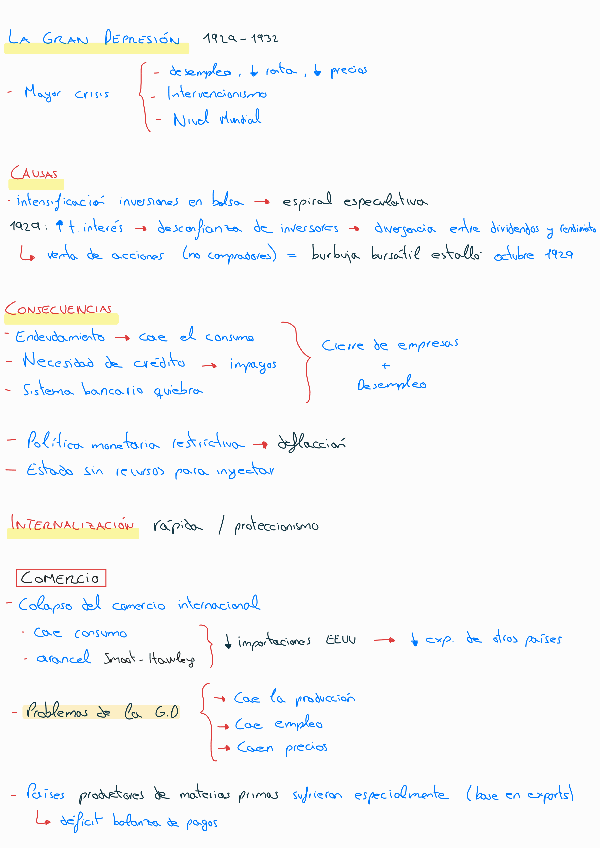 LA GRAN DEPRESIÓN 1929-1932
- desempleo, ↓ renta, ↓ precios
- Mayor crisis - Intervencionismo
- Nivel Mundial
CAUSAS
· intensificación inversiones en bolsa → espiral especulativa
1929: ↑ t. interés → desconfianza de inversores → divergencia entre dividendos y rendimiento
↳ venta de acciones (no compradores) = burbuja bursátil estalló octubre 1929
CONSECUENCIAS
- Endeudamiento → cae el consumo
- Necesidad de crédito → impagos
- Sistema bancario quiebra
Cierre de empresas
+
Desempleo
- Política monetaria restrictiva → deflacción
- Estado sin recursos para inyectar
INTERNALIZACIÓN rápida / proteccionismo
COMERCIO
- Colapso del comercio internacional
· cae consumo
· arancel Smoot-Hawley
↓ importaciones EEUU → ↓ exp. de otros países
- Problemas de la G.D
→ Cae la producción
→ Cae empleo
→ Caen precios
- Países productores de materias primas sufrieron especialmente (base en exports)
↳ déficit balanza de pagos